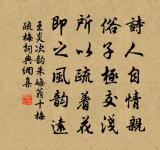 詩人自情親
俗子極交淺
所以疏着花
即之風韵遠
王炎次韵朱晦翁十梅
疏梅詩典網集